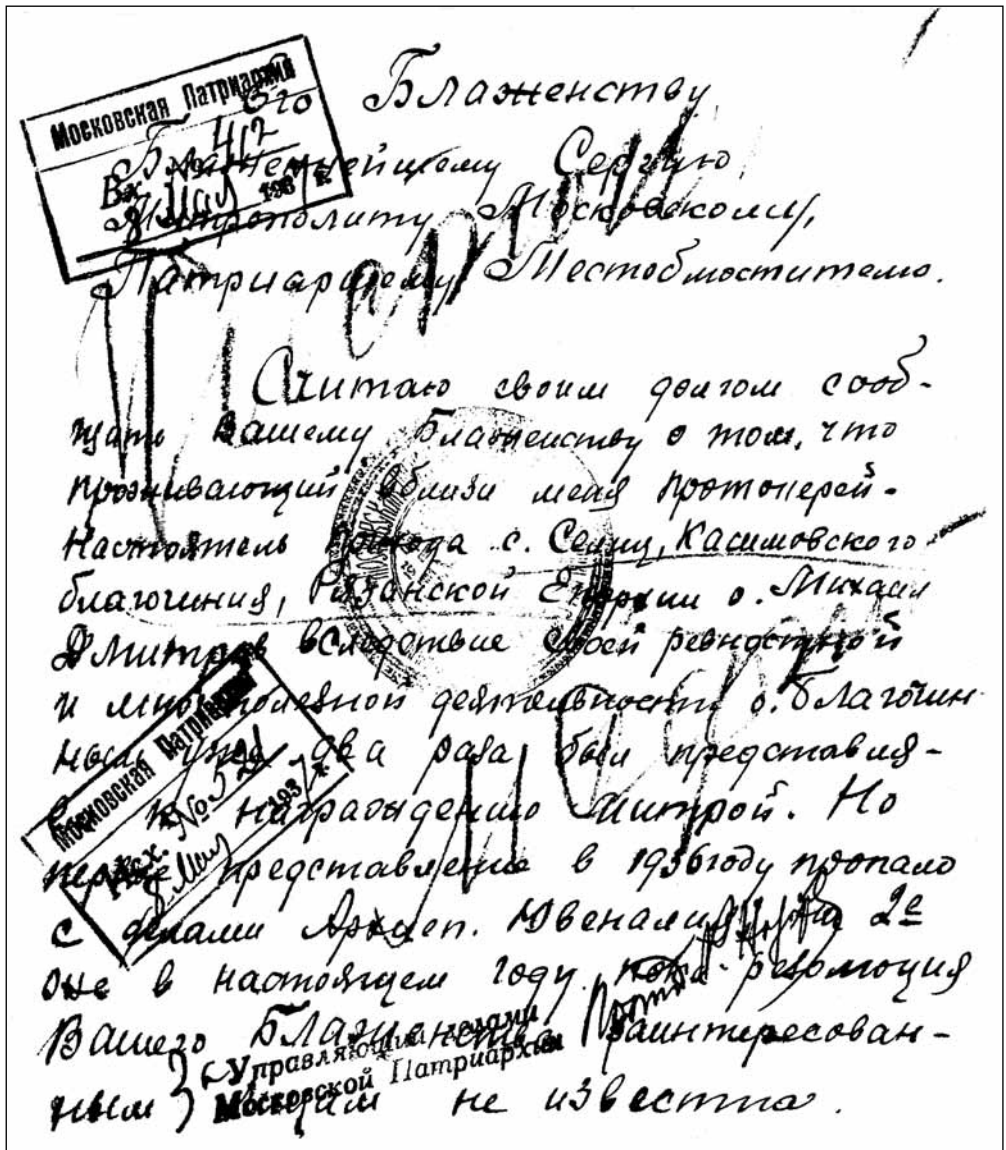 Московская Патриархия
Вх. № 412
8 Мая 1937 г.
Его Блаженству
Блаженнейшему Сергию
Митрополиту Московскому,
Патриаршему Местоблюстителю.
Считаю своим долгом сооб-
щать Вашему Блаженству о том, что
проживающий вблизи меня протоиерей-
настоятель прихода с. Селищ, Касимовского
благочиния, Рязанской Епархии о. Михаил
Дмитрев вследствие своей ревностной
и многополезной деятельности о. Благочин
ным уже два раза был представля-
к награждению митрой. Но
первое представление в 1936 году пропало
с делами Архиеп. Ювеналия, 2е
же в настоящем году, пока резолюция
Вашего Блаженства заинтересован-
ным лицам не известна.
Московская Патриархия
Исх. № 521
8 Мая 1937 г.
Управляющий делами
Московской Патриархии